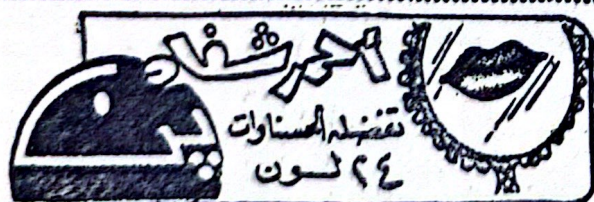 احمر شفا
تفضله الحسناوات
٢٤ لون